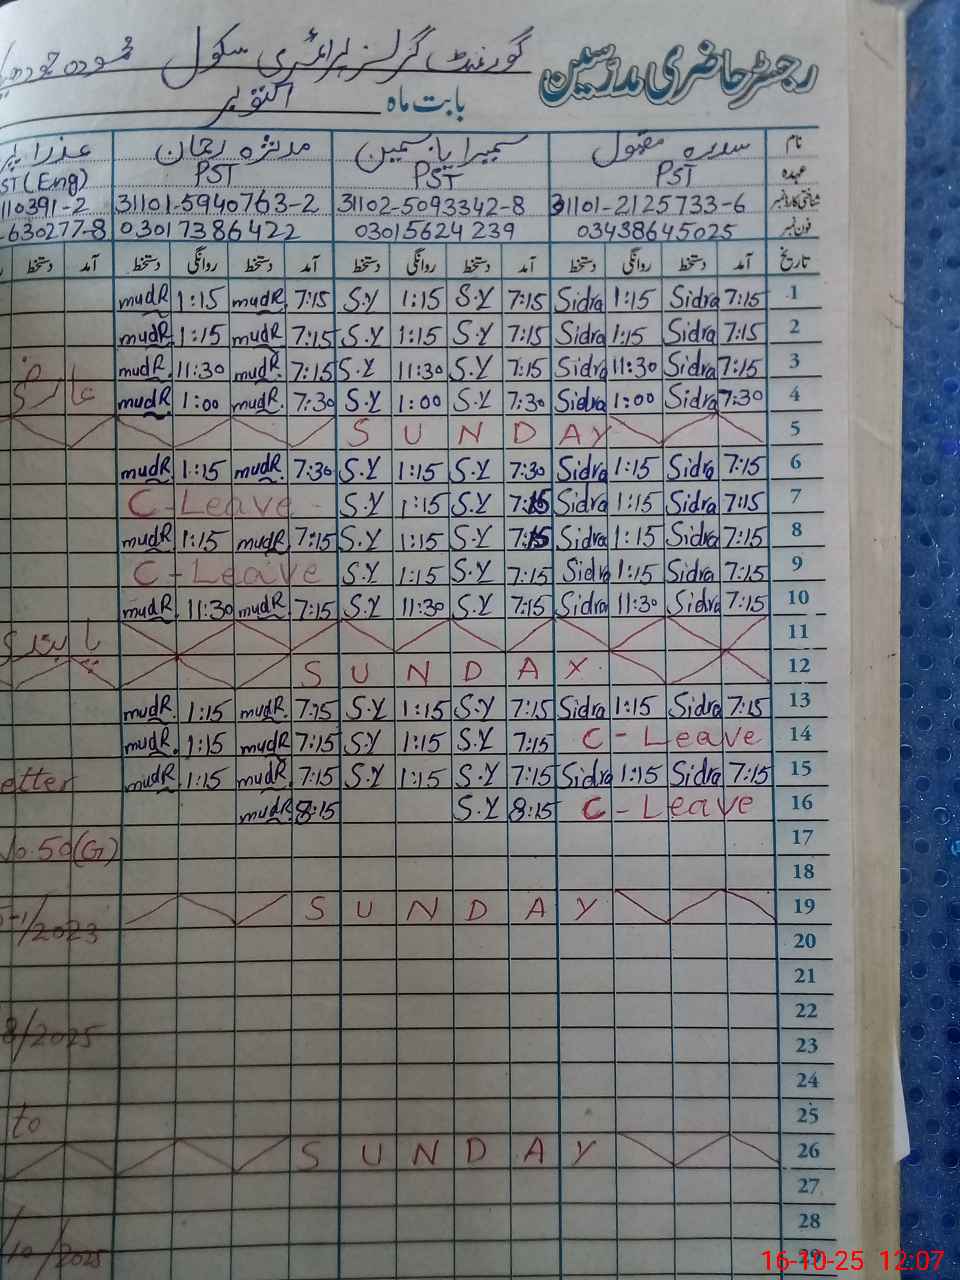 رجسٹر حاضری مدرسین گورنمنٹ گرلز پرائمری سکول
بابت ماہ اکتوبر
نام سدرہ مقبول سمیرا یاسمین مدثرہ رحمان عذرا
عہدہ PST PST PST ST(Eng)
شناختی کارڈ نمبر 31101-2125733-6 31102-5093342-8 31101-5940763-2 110391-2
فون نمبر 03438645025 03015624239 03017386422 -630277-8
تاریخ آمد دستخط روانگی دستخط آمد دستخط روانگی دستخط آمد دستخط روانگی دستخط آمد دستخط
mudR 1:15 mudR 7:15 S.Y 1:15 S.Y 7:15 Sidra 1:15 Sidra 7:15 1
mudR 1:15 mudR 7:15 S.Y 1:15 S.Y 7:15 Sidra 1:15 Sidra 7:15 2
mudR 11:30 mudR. 7:15 S.Y 11:30 S.Y 7:15 Sidra 11:30 Sidra 7:15 3
mudR 1:00 mudR. 7:30 S.Y 1:00 S.Y 7:30 Sidra 1:00 Sidra 7:30 4
SUNDAY 5
mudR 1:15 mudR. 7:30 S.Y 1:15 S.Y 7:30 Sidra 1:15 Sidra 7:15 6
C-Leave S.Y 1:15 S.Y 7:15 Sidra 1:15 Sidra 7:15 7
mudR 1:15 mudR 7:15 S.Y 1:15 S.Y 7:15 Sidra 1:15 Sidra 7:15 8
C-Leave S.Y 1:15 S.Y 7:15 Sidra 1:15 Sidra 7:15 9
mudR. 11:30 mudR. 7:15 S.Y 11:30 S.Y 7:15 Sidra 11:30 Sidra 7:15 10
11
SUNDAY 12
mudR. 1:15 mudR. 7:15 S.Y 1:15 S.Y 7:15 Sidra 1:15 Sidra 7:15 13
mudR. 1:15 mudR 7:15 S.Y 1:15 S.Y 7:15 C-Leave 14
etter mudR. 1:15 mudR. 7:15 S.Y 1:15 S.Y 7:15 Sidra 1:15 Sidra 7:15 15
mudR 8:15 S.Y 8:15 C-Leave 16
No.50(G) 17
18
SUNDAY 19
/2023 20
21
22
8/2025 23
24
to 25
SUNDAY 26
27
28
/10/2025 29
16-10-25 12:07